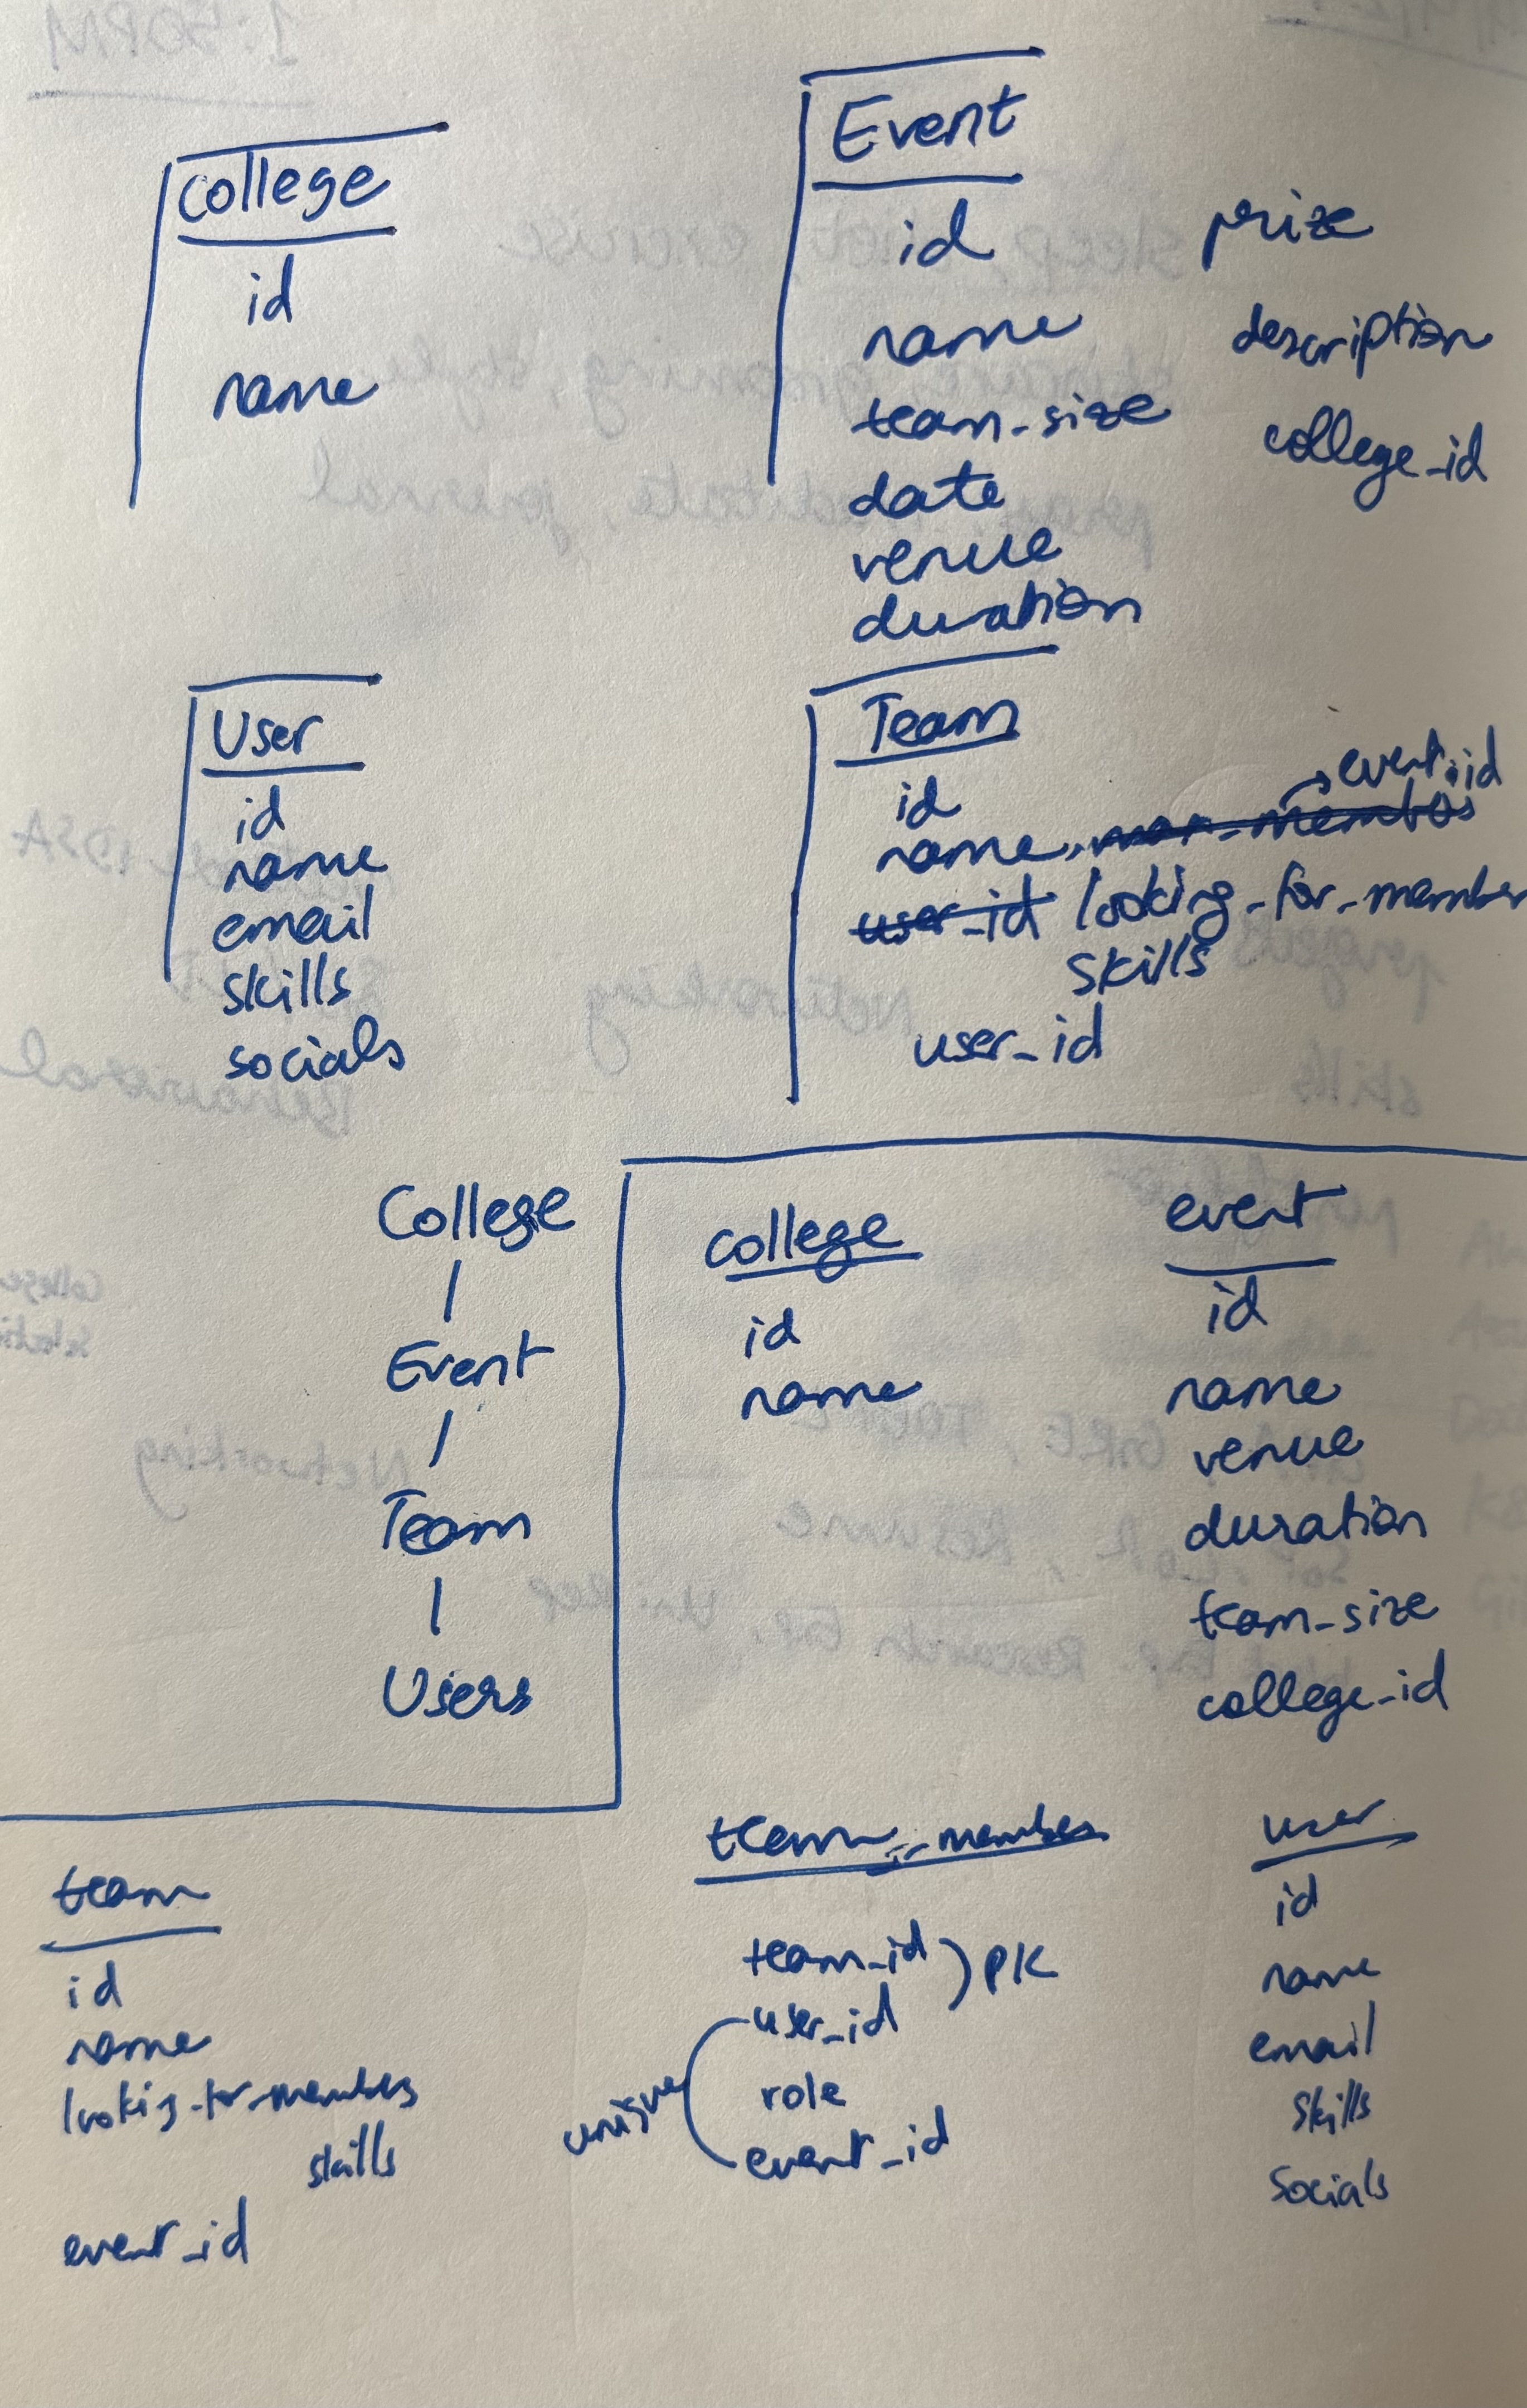 College
id
name
Event
id
name
team_size
date
venue
duration
prize
description
college_id
User
id
name
email
skills
socials
Team
id
event_id
name, max_members
user_id looking_for_member
skills
user_id
College
Event
Team
Users
college
id
name
event
id
name
venue
duration
team_size
college_id
team
id
name
looking_for_members
skills
event_id
team_member
team_id
PK
user_id
unique
role
event_id
user
id
name
email
skills
socials